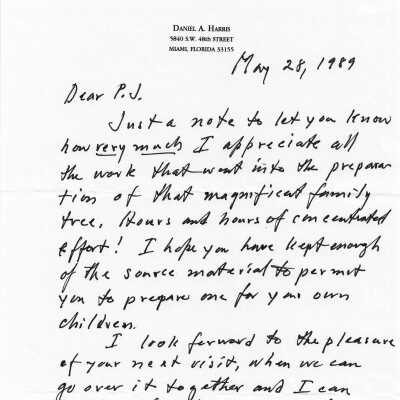 DANIEL A. HARRIS
5840 S.W. 48th STREET
MIAMI, FLORIDA 33155
May 28, 1989
Dear P.J.
Just a note to let you know
how very much I appreciate all
the work that went into the prepara
tion of that magnificent family
tree. Hours and hours of concentrated
effort! I hope you have kept enough
of the source material to permit
you to prepare one for your own
children.
I look forward to the pleasure
of your next visit, when we can
go over it together and I can